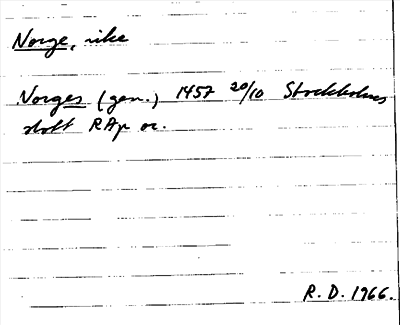 Norge, rike
Norges (gen.) 1457 20/10 Stockholms
slott RAp or.
R. D. 1966.